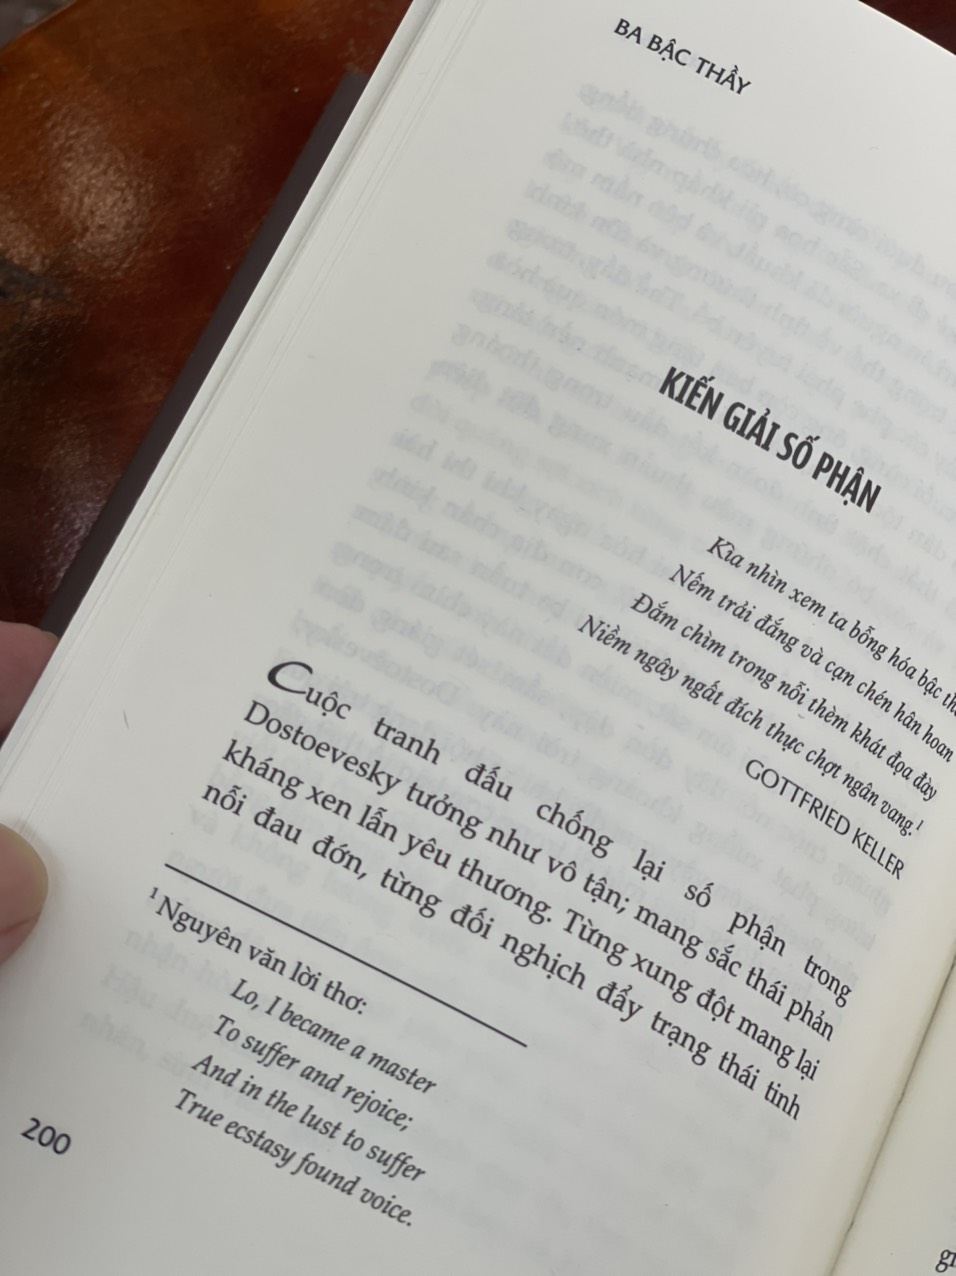 BA BẬC THẦY
KIẾN GIẢI SỐ PHẬN
Kìa nhìn xem ta bỗng hóa bậc
Nếm trải đắng và cạn chén hân hoan
Đắm chìm trong nỗi thèm khát đọa đày
Niềm ngây ngất đích thực chợt ngân vang.¹
GOTTFRIED KELLER
Cuộc tranh đấu chống lại số phận trong
Dostoevesky tưởng như vô tận; mang sắc thái phản
kháng xen lẫn yêu thương. Từng xung đột mang lại
nỗi đau đớn, từng đối nghịch đẩy trạng thái tinh
¹ Nguyên văn lời thơ:
Lo, I became a master
To suffer and rejoice;
And in the lust to suffer
True ecstasy found voice.
200